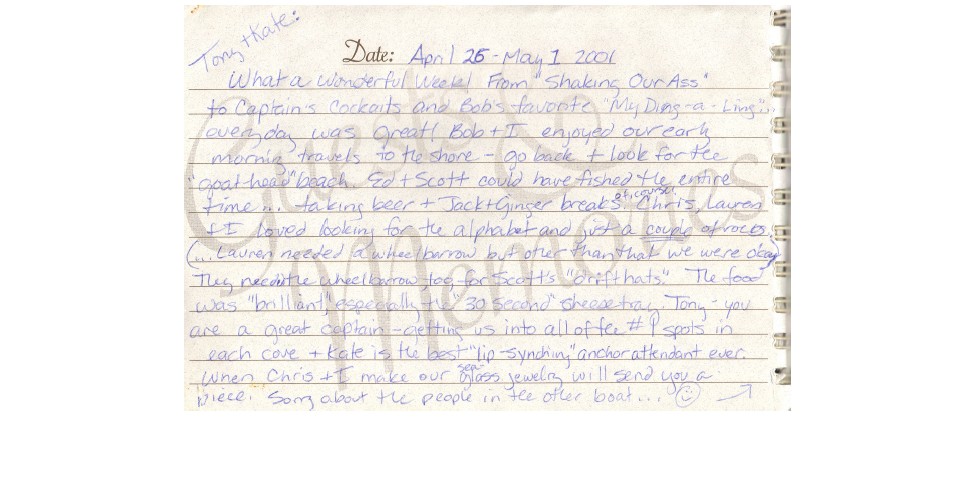 Tony + Kate:
Date: April 25 - May 1 2001
What a wonderful week! From "Shaking Our Ass"
to Captain's Cocktails and Bob's favorite "My Ding-a-Ling"...
everyday was great! Bob + I enjoyed our early
morning travels to the shore - go back + look for the
"goat head" beach. Ed + Scott could have fished the entire
time... taking beer + Jack + Ginger breaks of course! Chris, Lauren
+ I loved looking for the alphabet and just a couple of rocks.
(... Lauren needed a wheelbarrow but other than that we were okay)
They need the wheelbarrow too for Scott's "drift hats". The food
was "brilliant" especially the "30 second" cheese tray. Tony - you
are a great captain - getting us into all of the #1 spots in
each cove + Kate is the best "lip-synching" anchor attendant ever.
When Chris + I make our sea glass jewelry will send you a
piece. Sorry about the people in the other boat... ☺ →
Guests & Memories